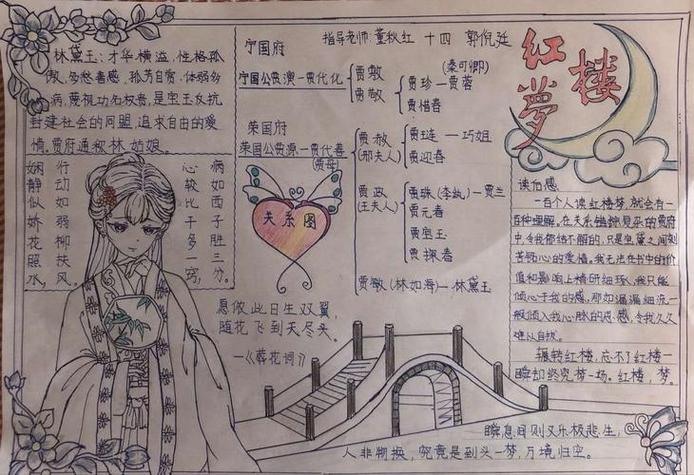 林黛玉:才华横溢,性格孤
傲,多愁善感,孤芳自赏,体弱多
病,蔑视功名权贵,是宝玉反抗
封建社会的同盟,追求自由的爱
情。贾府通称林姑娘。
娴静似娇花照水,
行动如弱柳扶风。
心较比干多一窍,
病如西子胜三分。
宁国府
宁国公贾演—贾代化
贾敷
贾敬
(秦可卿)
贾珍—贾蓉
贾惜春
荣国府
荣国公贾源—贾代善
(贾母)
贾赦
(邢夫人)
贾琏—巧姐
贾迎春
贾政
(王夫人)
贾珠(李纨)—贾兰
贾元春
贾宝玉
贾探春
贾敏(林如海)—林黛玉
关系图
愿做此日生双翼
随花飞到天尽头。
—《葬花词》
指导老师:董秋红 十四 郭倪廷
红楼梦
读后感
一百个人读红楼梦,就会有一
百种理解。在关系错综复杂的贾府
中,令我
的爱情。我无法在书中的价
值和影响上精研细琢,我只能
倾心于我的感,那如涓涓细流一
般倾入我心脉的思,感,令我久久
难以自拔。
辗转红楼,忘不了红楼一
瞬却终究梦一场。红楼,梦。
瞬息间则又乐极悲生,
人非物换,究竟是到头一梦,万境归空。